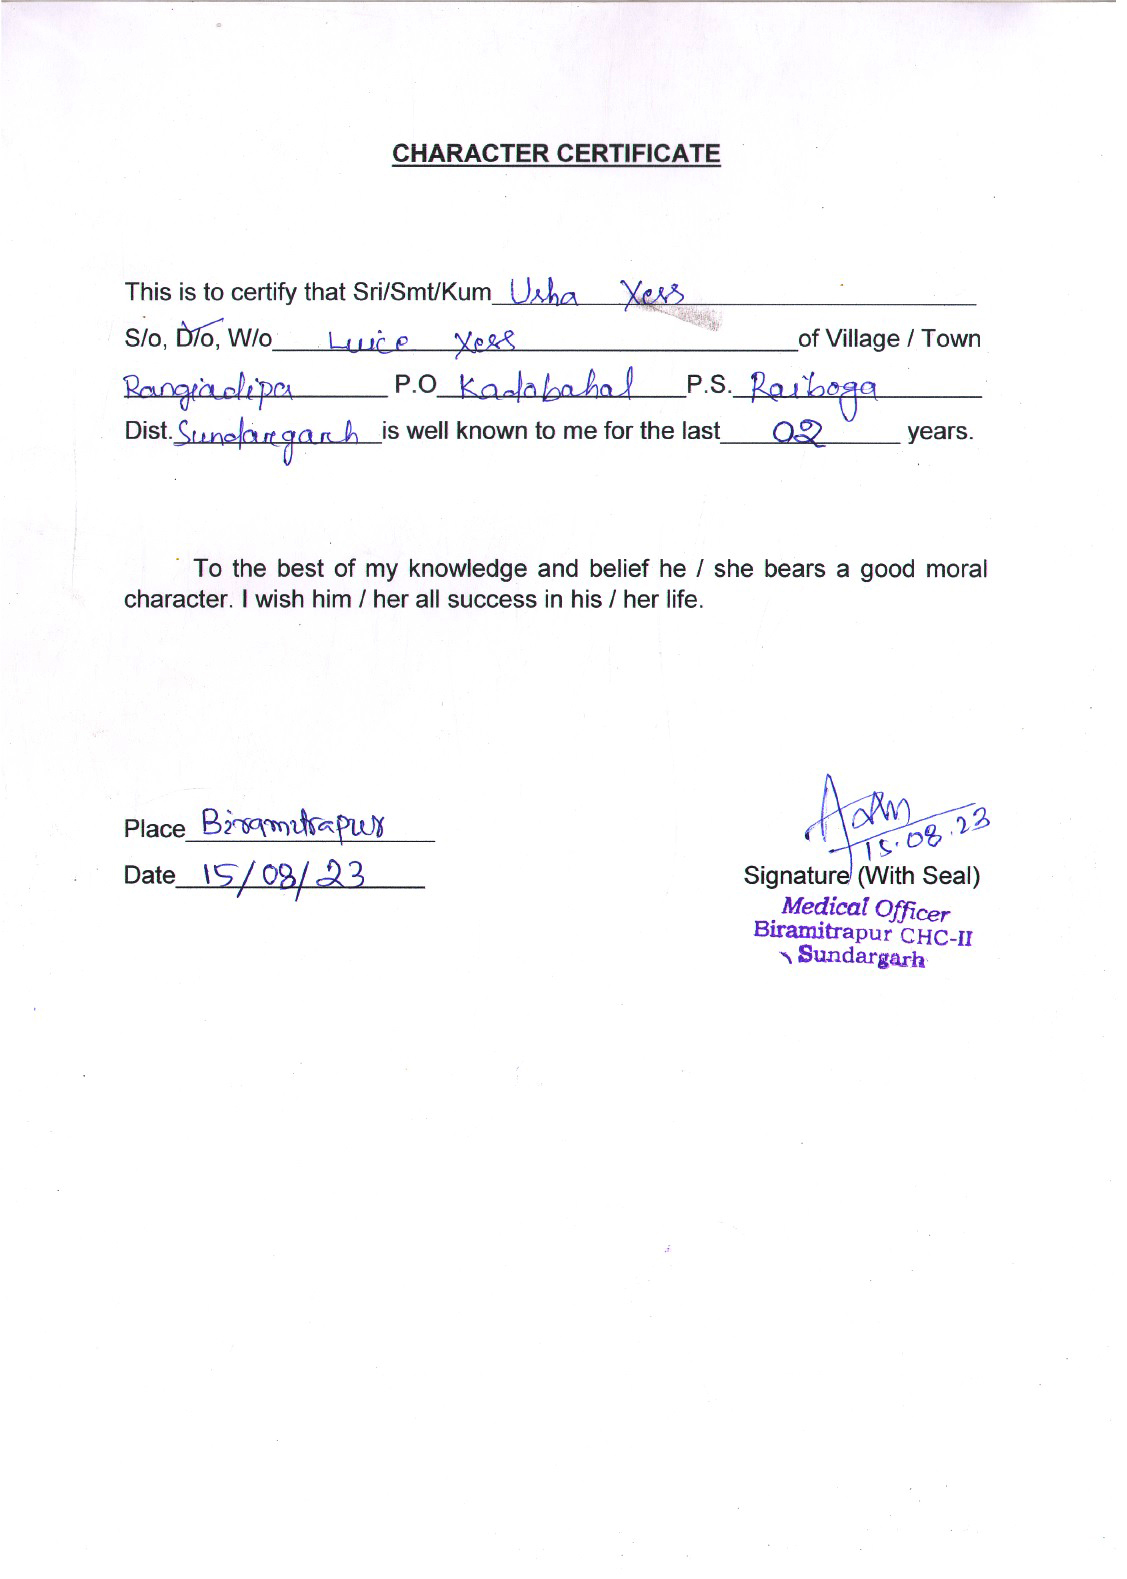 CHARACTER CERTIFICATE
This is to certify that Sri/Smt/Kum Usha Xess
S/o, D/o, W/o Luice Xess of Village / Town
Rangiadipa P.O Kadobahal P.S. Raiboga
Dist. Sundargarh is well known to me for the last 02 years.
To the best of my knowledge and belief he / she bears a good moral
character. I wish him / her all success in his / her life.
15.08.23
Place Biramitrapur
Date 15/08/23 Signature (With Seal)
Medical Officer
Biramitrapur CHC-II
Sundargarh